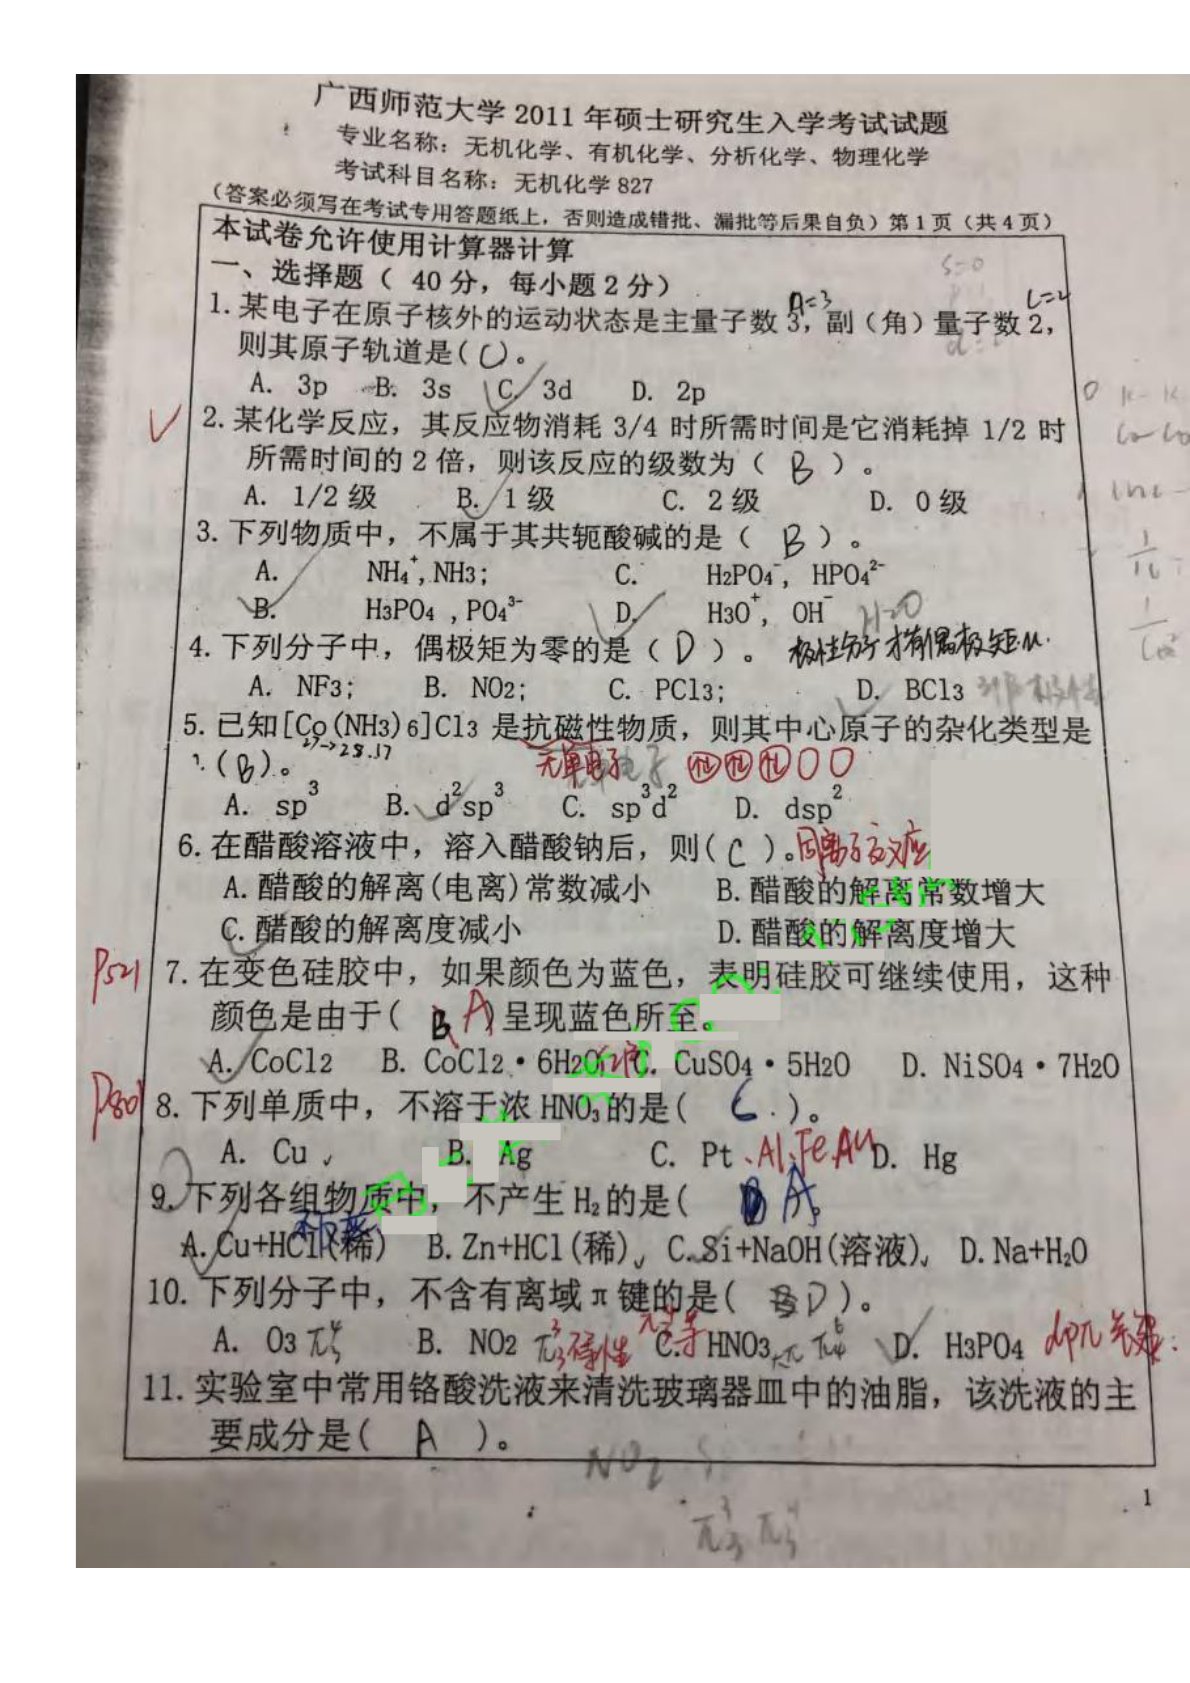 广西师范大学 2011 年硕士研究生入学考试试题
专业名称：无机化学、有机化学、分析化学、物理化学
考试科目名称：无机化学 827
（答案必须写在考试专用答题纸上，否则造成错批、漏批等后果自负）第 1 页（共 4 页）
本试卷允许使用计算器计算
一、选择题（ 40 分，每小题 2 分）
n=3 L=2
1. 某电子在原子核外的运动状态是主量子数 3，副（角）量子数 2，
则其原子轨道是( C )。
A. 3p B. 3s C. 3d D. 2p
2. 某化学反应，其反应物消耗 3/4 时所需时间是它消耗掉 1/2 时
所需时间的 2 倍，则该反应的级数为（ B ）。
A. 1/2 级 B. 1 级 C. 2 级 D. 0 级
3. 下列物质中，不属于其共轭酸碱的是（ B ）。
A. NH₄⁺, NH3; C. H2PO4⁻, HPO4²⁻
B. H3PO4 , PO4³⁻ D. H3O⁺, OH⁻ H2O
4. 下列分子中，偶极矩为零的是（ D ）。 极性分子才有偶极矩μ.
A. NF3; B. NO2; C. PCl3; D. BCl3
5. 已知[Co(NH3)6]Cl3 是抗磁性物质，则其中心原子的杂化类型是
( B )。 无单电子
A. sp³ B. d²sp³ C. sp³d² D. dsp²
6. 在醋酸溶液中，溶入醋酸钠后，则( C )。同离子效应
A. 醋酸的解离(电离)常数减小 B. 醋酸的解离常数增大
C. 醋酸的解离度减小 D. 醋酸的解离度增大
P521 7. 在变色硅胶中，如果颜色为蓝色，表明硅胶可继续使用，这种
颜色是由于( B A )呈现蓝色所至。
A. CoCl2 B. CoCl2·6H2O C. CuSO4·5H2O D. NiSO4·7H2O
P501 8. 下列单质中，不溶于浓 HNO₃的是( C )。
A. Cu B. Ag C. Pt、Al、Fe、Au D. Hg
9. 下列各组物质中，不产生 H₂的是( A )。
A. Cu+HCl(稀) B. Zn+HCl(稀) C. Si+NaOH(溶液) D. Na+H₂O
10. 下列分子中，不含有离域π键的是( D )。
A. O3 π₃⁴ B. NO2 π₃³ 磁性 C. HNO3 π₄⁶ D. H3PO4 dpπ
11. 实验室中常用铬酸洗液来清洗玻璃器皿中的油脂，该洗液的主
要成分是( A )。
NO2
π₃³ π₃⁴
1